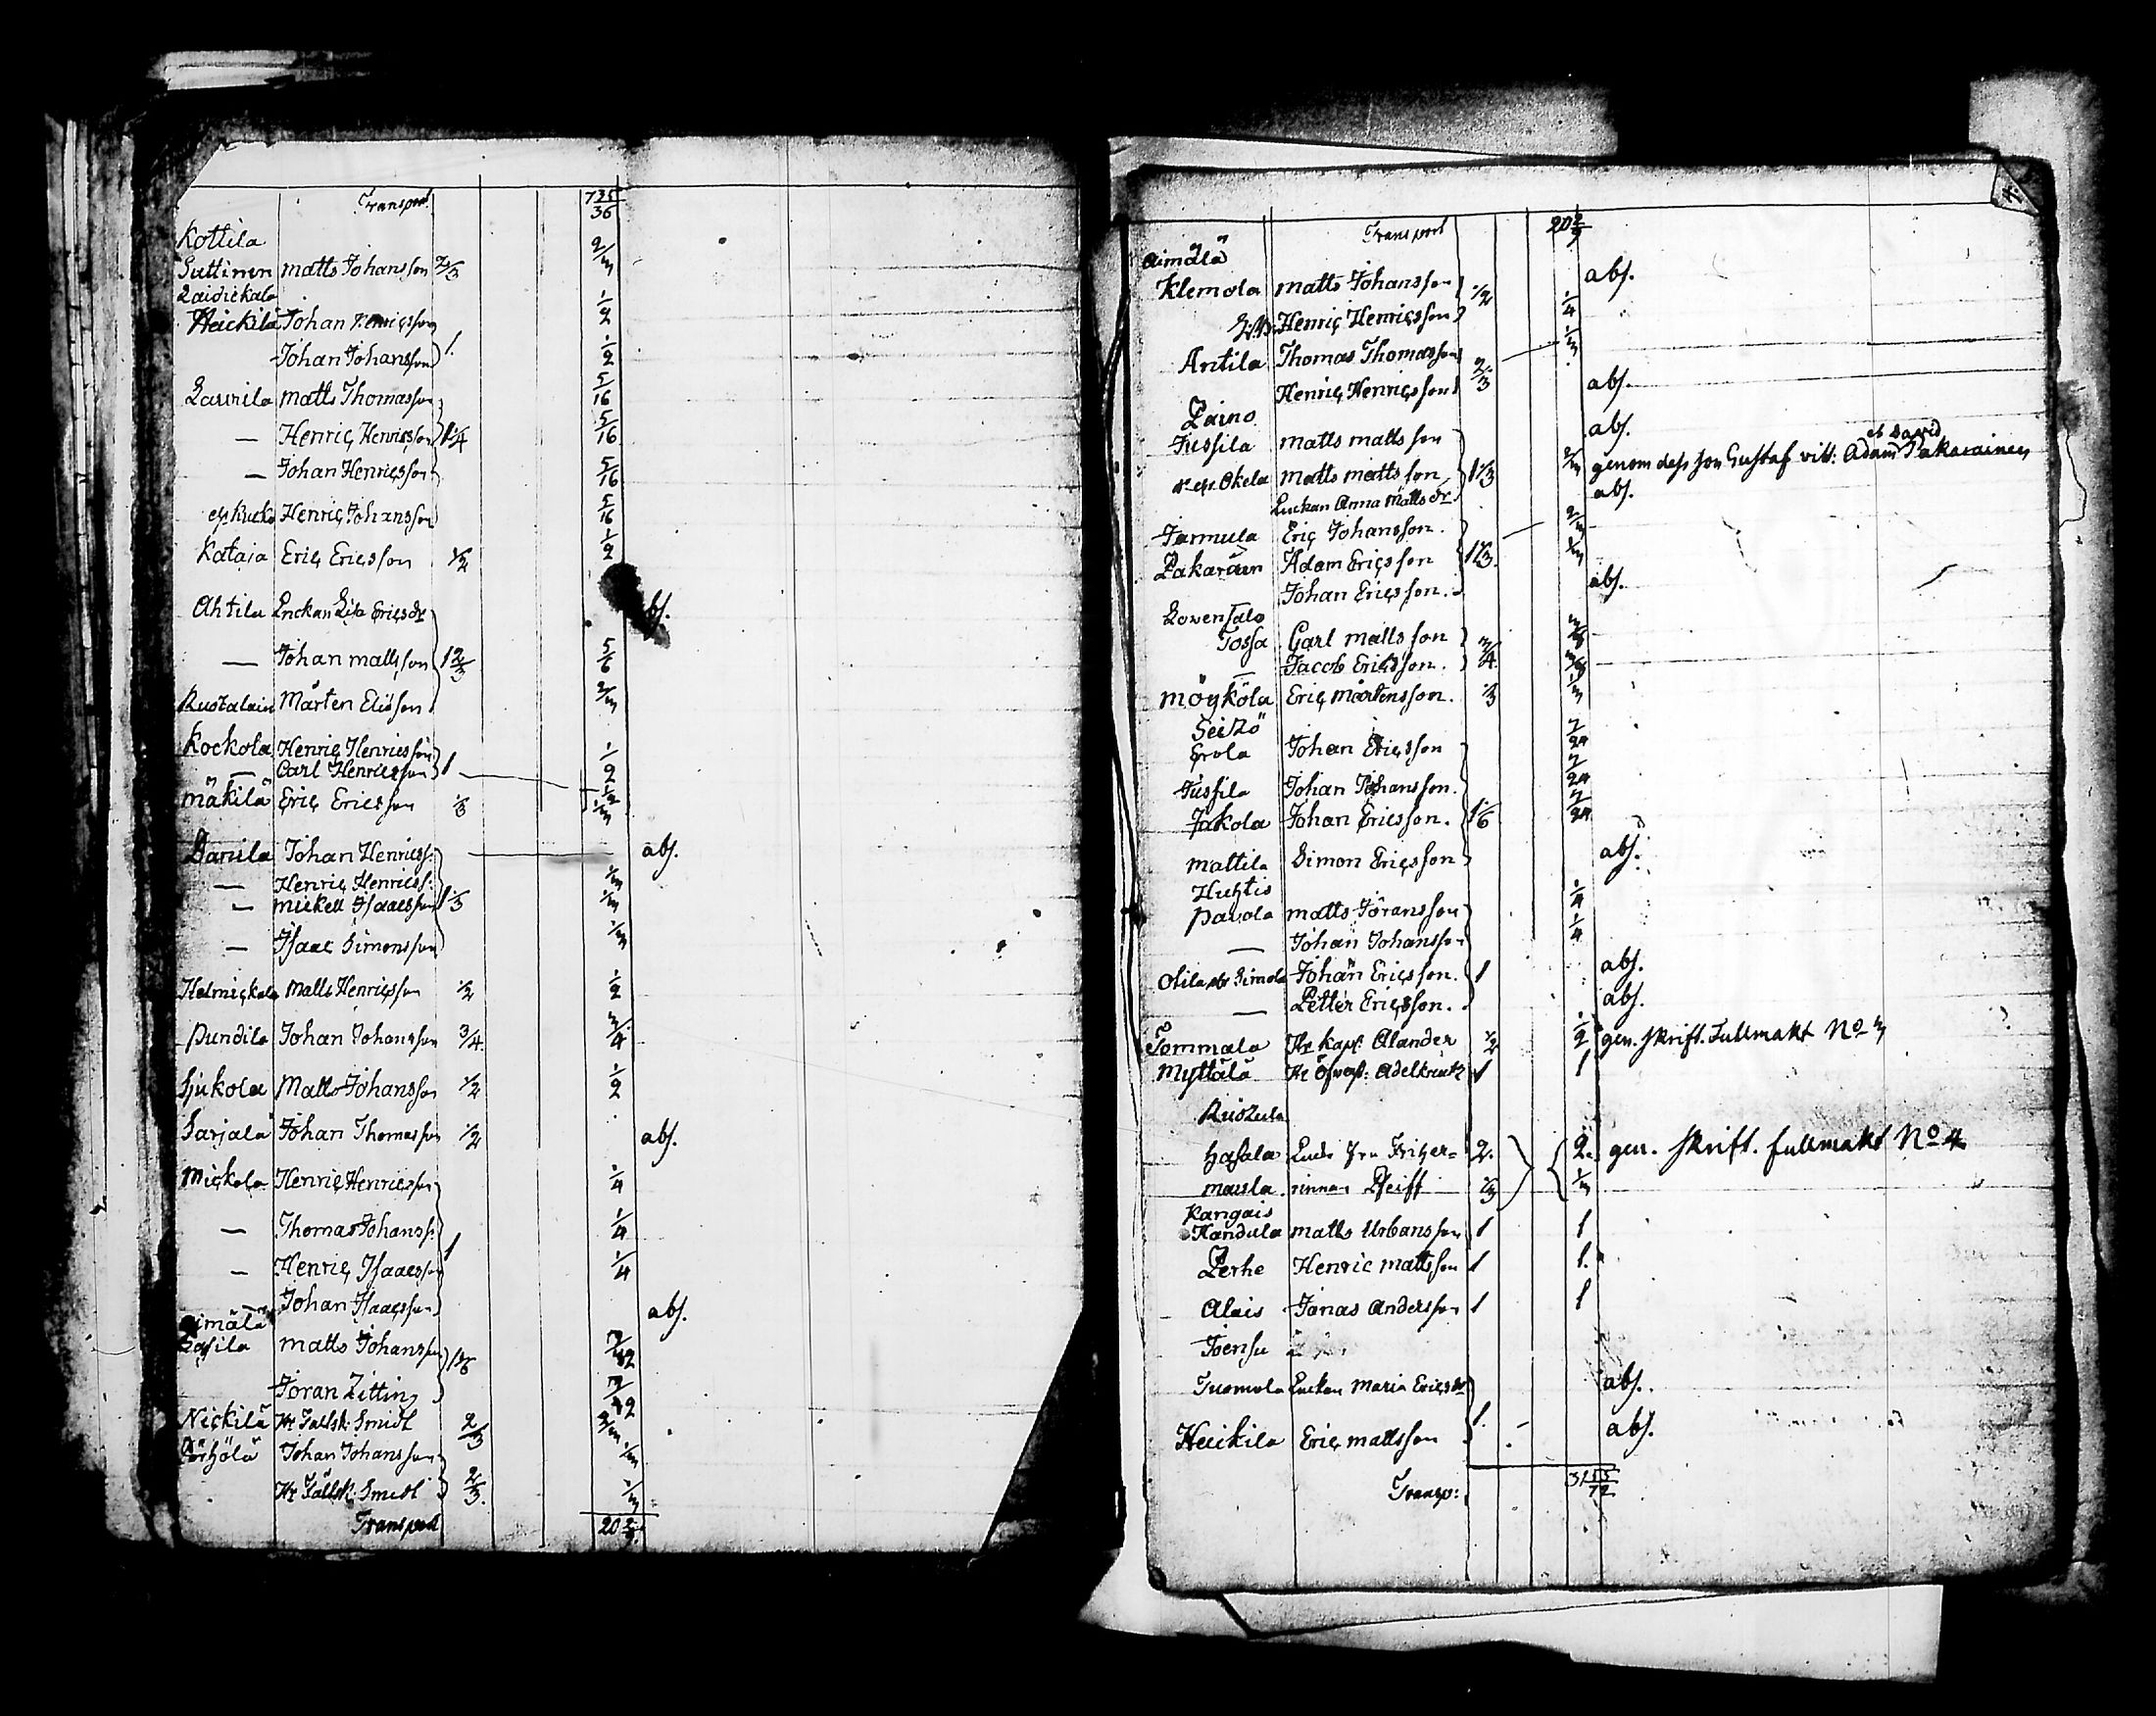 Transport 7 35/36
Kottila
Suttinen Matts Johansson 2/3 2/3
Laidickala
Heickilä Johan Henricsson 1/2
Johan Johansson 1. 1/2
Laurila Matts Thomasson 5/16
— Henric Henricsson 1 1/4 5/16
— Johan Henricsson 5/16
Henric Johansson 5/16
Kataja Eric Ericsson 1/2 1/2
Ahtila Enckan Lisa Ericsdr abs.
— Johan Mattsson 1 2/3 5/6
Mårten Elisson 2/3
Kockola Henric Henricsson 1/2
— Carl Henricsson 1 1/2
Mäkilä Eric Ericsson 1/3 1/3
Danila Johan Henricss: abs.
— Henric Henricss: 1/3
— Mickell Isaacsson 1 1/3 1/3
— Isaac Simonsson 1/3
Helmickala Matts Henricsson 1/2 1/2
Pundila Johan Johansson 3/4 3/4
Sjukola Matts Johansson 1/2 1/2
Sarjala Johan Thomasson 1/2 abs.
Mickola Henric Henricsson 1/4
— Thomas Johanss: 1/4
— Henric Isaacsson 1 1/4
— Johan Isaacsson abs.
Aimälä
Matts Johansson 1 1/6 7/12
Jöran Zitting 7/12
Nickilä Hr Fältsk: Smidt 2/3 2/3
Johan Johansson 1/3
Hr Fältsk: Smidt 2/3. 1/3
Transport 20 2/9.
4.
Transport 20 2/9
Aimälä
Klemola Matts Johansson 1/2 abs.
Henric Henricsson 1/4
Antila Thomas Thomasson 2/3 1/3
Henric Henricsson abs.
Paino
Jussila Matts Mattsson abs.
et David
Okela Matts Mattsson 1 1/3 2/3 genom dess son Gustaf vitt: Adam Pakarainen
Enckan Anna Mattsdr abs.
Jarmula Eric Johansson. 2/3
Pakarain Adam Ericsson 1 1/3. 1/3
Johan Ericsson. abs.
Lovensalo
Tossa Carl Mattsson 3/4 3/8
— Jacob Ericsson. 3/8
Möykölä Eric Mårtensson. 1/3 1/3
Seitzö
Erola Johan Ericsson 7/24
Jussila Johan Johansson. 7/24
Jakola Johan Ericsson. 1 1/6 7/24
Mattila Simon Ericsson abs.
Huhtis
Pavola Matts Jöransson 1/4
— Johan Johansson 1/4
Otila Simola Johan Ericsson. 1 abs.
— Petter Ericsson. abs.
Tommala Hr Kapt: Alander 1/2 1/2 gen. skrift. Fullmakt No 3
Myttälä Hr Öfverst: Adelkreutz 1 1
Hasala Fru Friher= 2. 2. gen. skrift. fullmakt No 4
rinnan Pfeiff 1/3 1/3
Kangais
Handula Matts Urbansson 1 1
Perhe Henric Mattsson 1 1.
Alais Jonas Andersson 1 1
Joensu
Tuomola Enckan Maria Ericsdr abs.
Heickila Eric Mattsson 1. abs.
Transp: 31